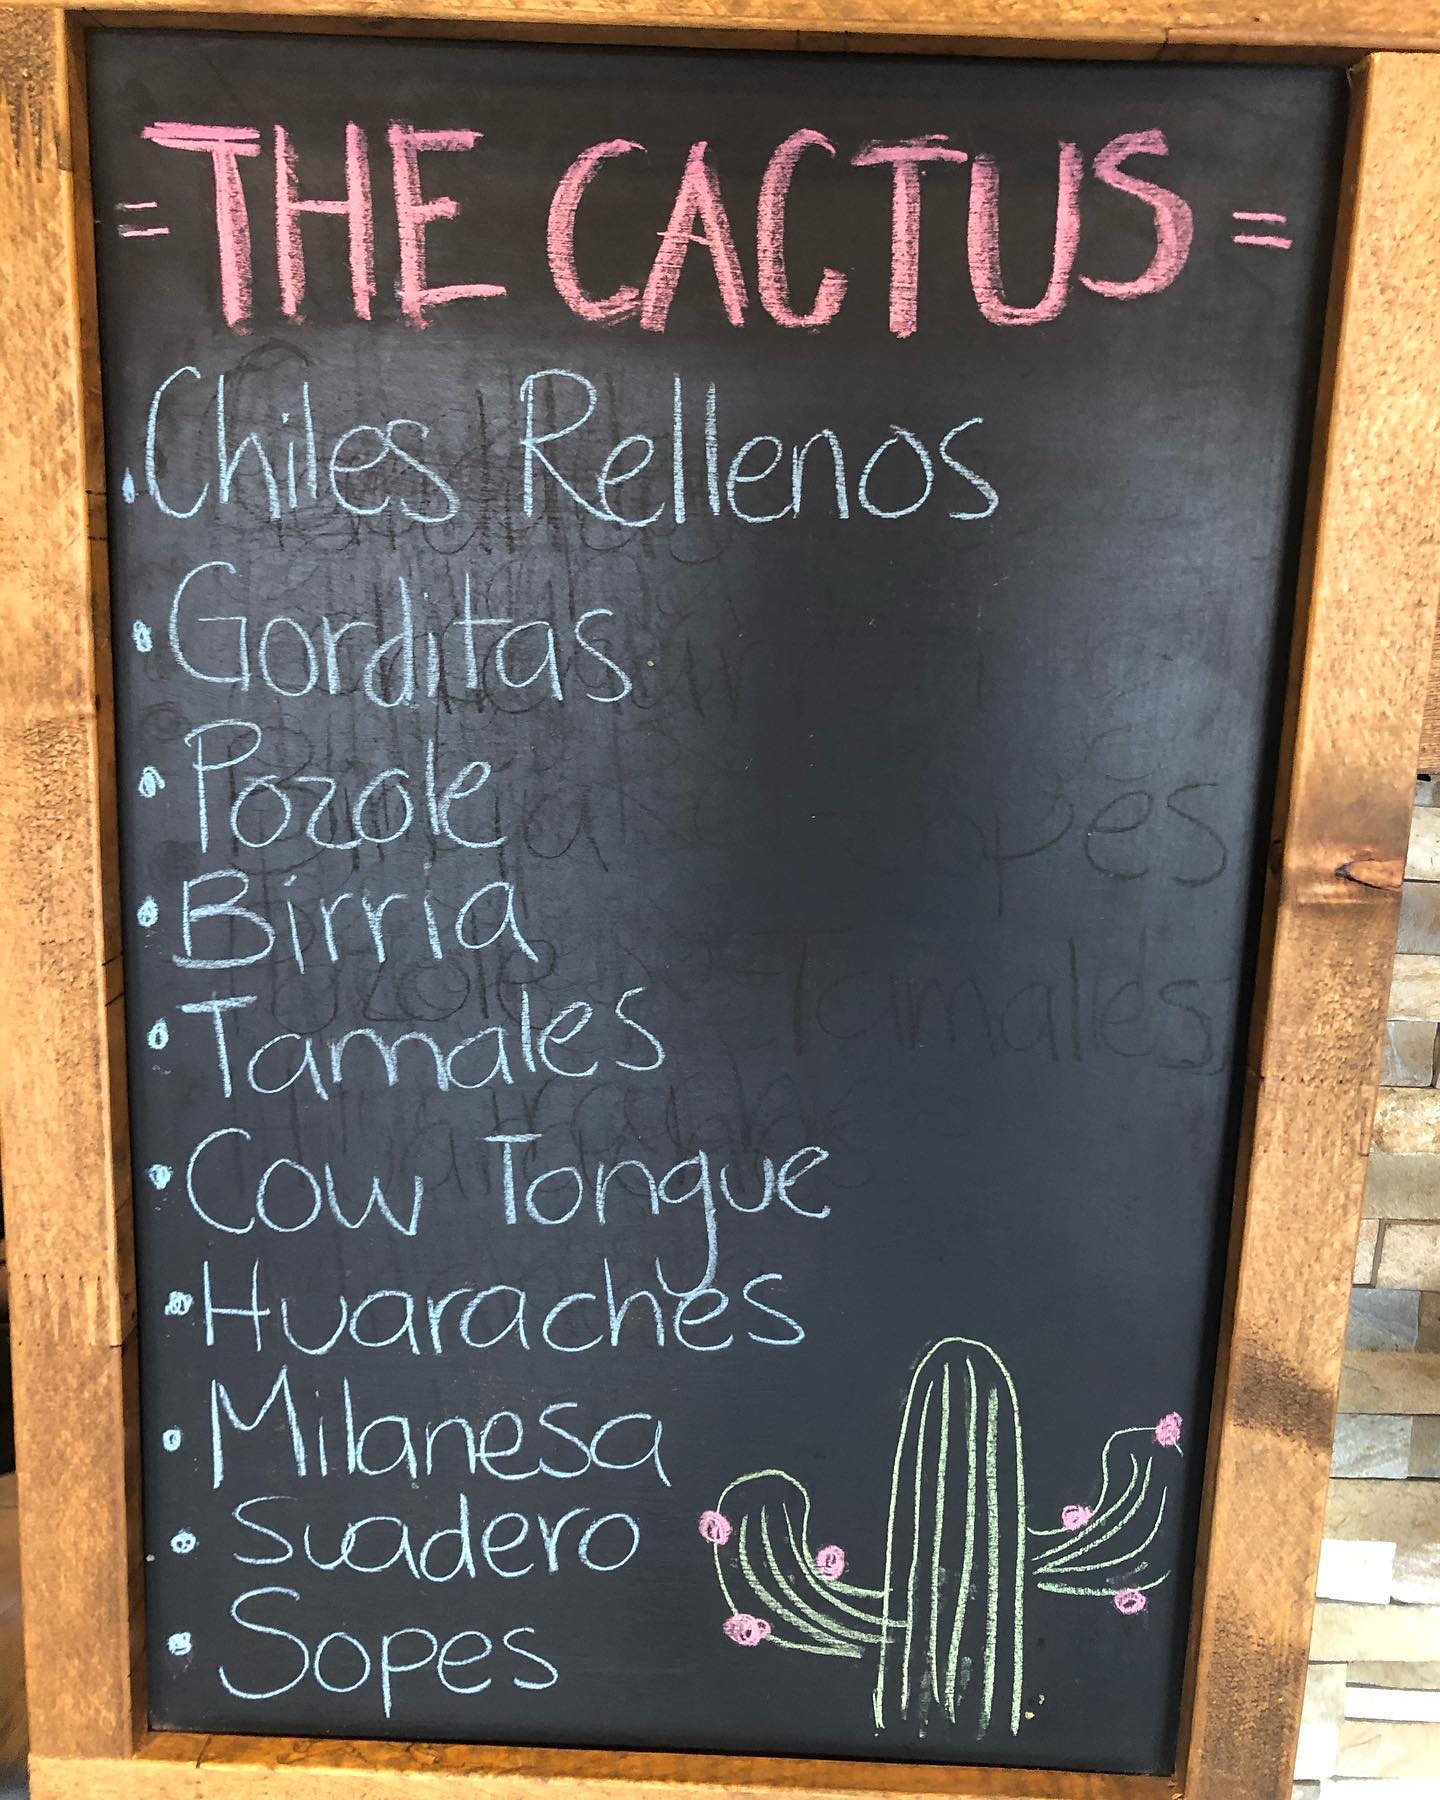 = THE CACTUS =
• Chiles Rellenos
• Gorditas
• Pozole
• Birria
• Tamales
• Cow Tongue
• Huaraches
• Milanesa
• Suadero
• Sopes